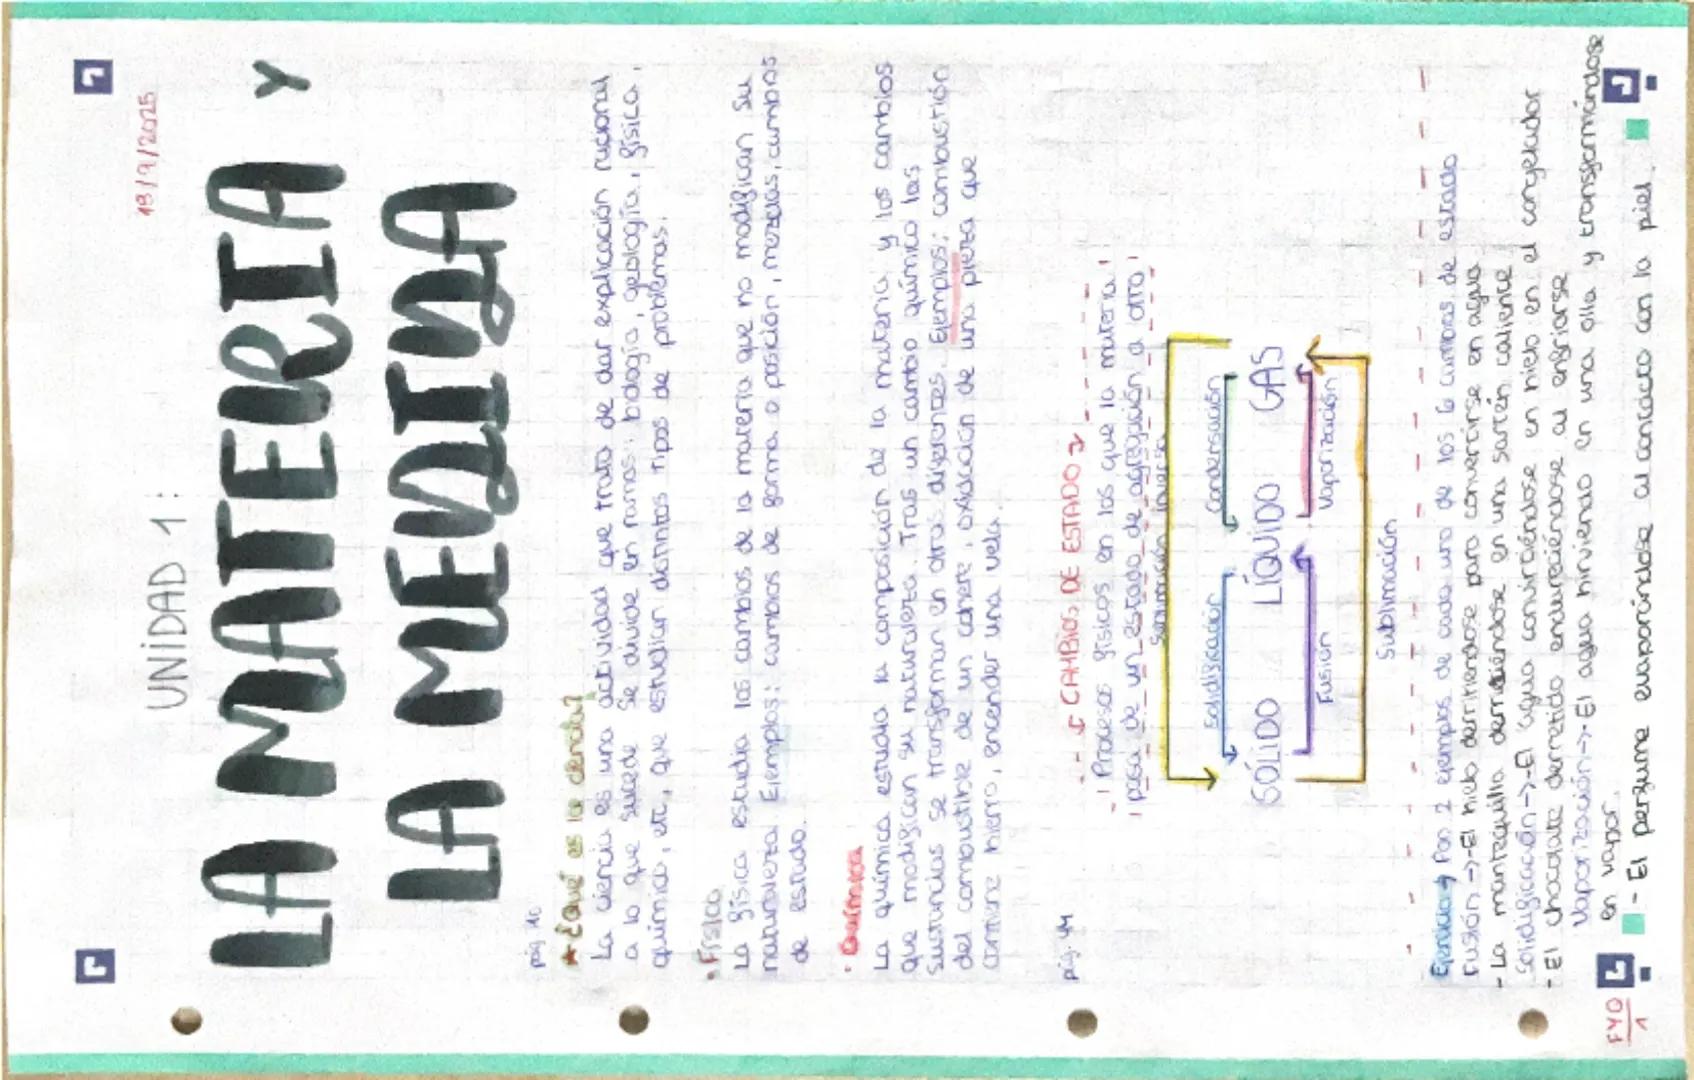 18/9/2025
UNIDAD 1:
LA MATERIA Y
LA MEDIDA
pág 10
★ ¿Qué es la ciencia?
La ciencia es una actividad que trata de dar explicación racional
a lo que sucede. Se divide en ramas: biología, geología, física,
química, etc, que estudian distintos tipos de problemas.
· Física
La física estudia los cambios de la materia que no modifican su
naturaleza. Ejemplos: cambios de forma o posición, mezclas, cambios
de estado.
· Química
La química estudia la composición de la materia y los cambios
que modifican su naturaleza. Tras un cambio químico las
sustancias se transforman en otras diferentes. Ejemplos: combustión
del combustible de un cohete, oxidación de una pieza que
contiene hierro, encender una vela.
pág. 44
CAMBIOS DE ESTADO
Procesos físicos en los que la materia
pasa de un estado de agregación a otro
Sublimación inversa
Solidificación Condensación
SÓLIDO LÍQUIDO GAS
Fusión Vaporización
Sublimación
Ejercicio → Pon 2 ejemplos de cada uno de los 6 cambios de estado
Fusión -> - El hielo derritiéndose para convertirse en agua
- La mantequilla derritiéndose en una sartén caliente
Solidificación -> - El agua convirtiéndose en hielo en el congelador
- El chocolate derretido endureciéndose al enfriarse
Vaporización -> - El agua hirviendo en una olla y transformándose
en vapor.
- El perfume evaporándose al contacto con la piel.
FYQ
1